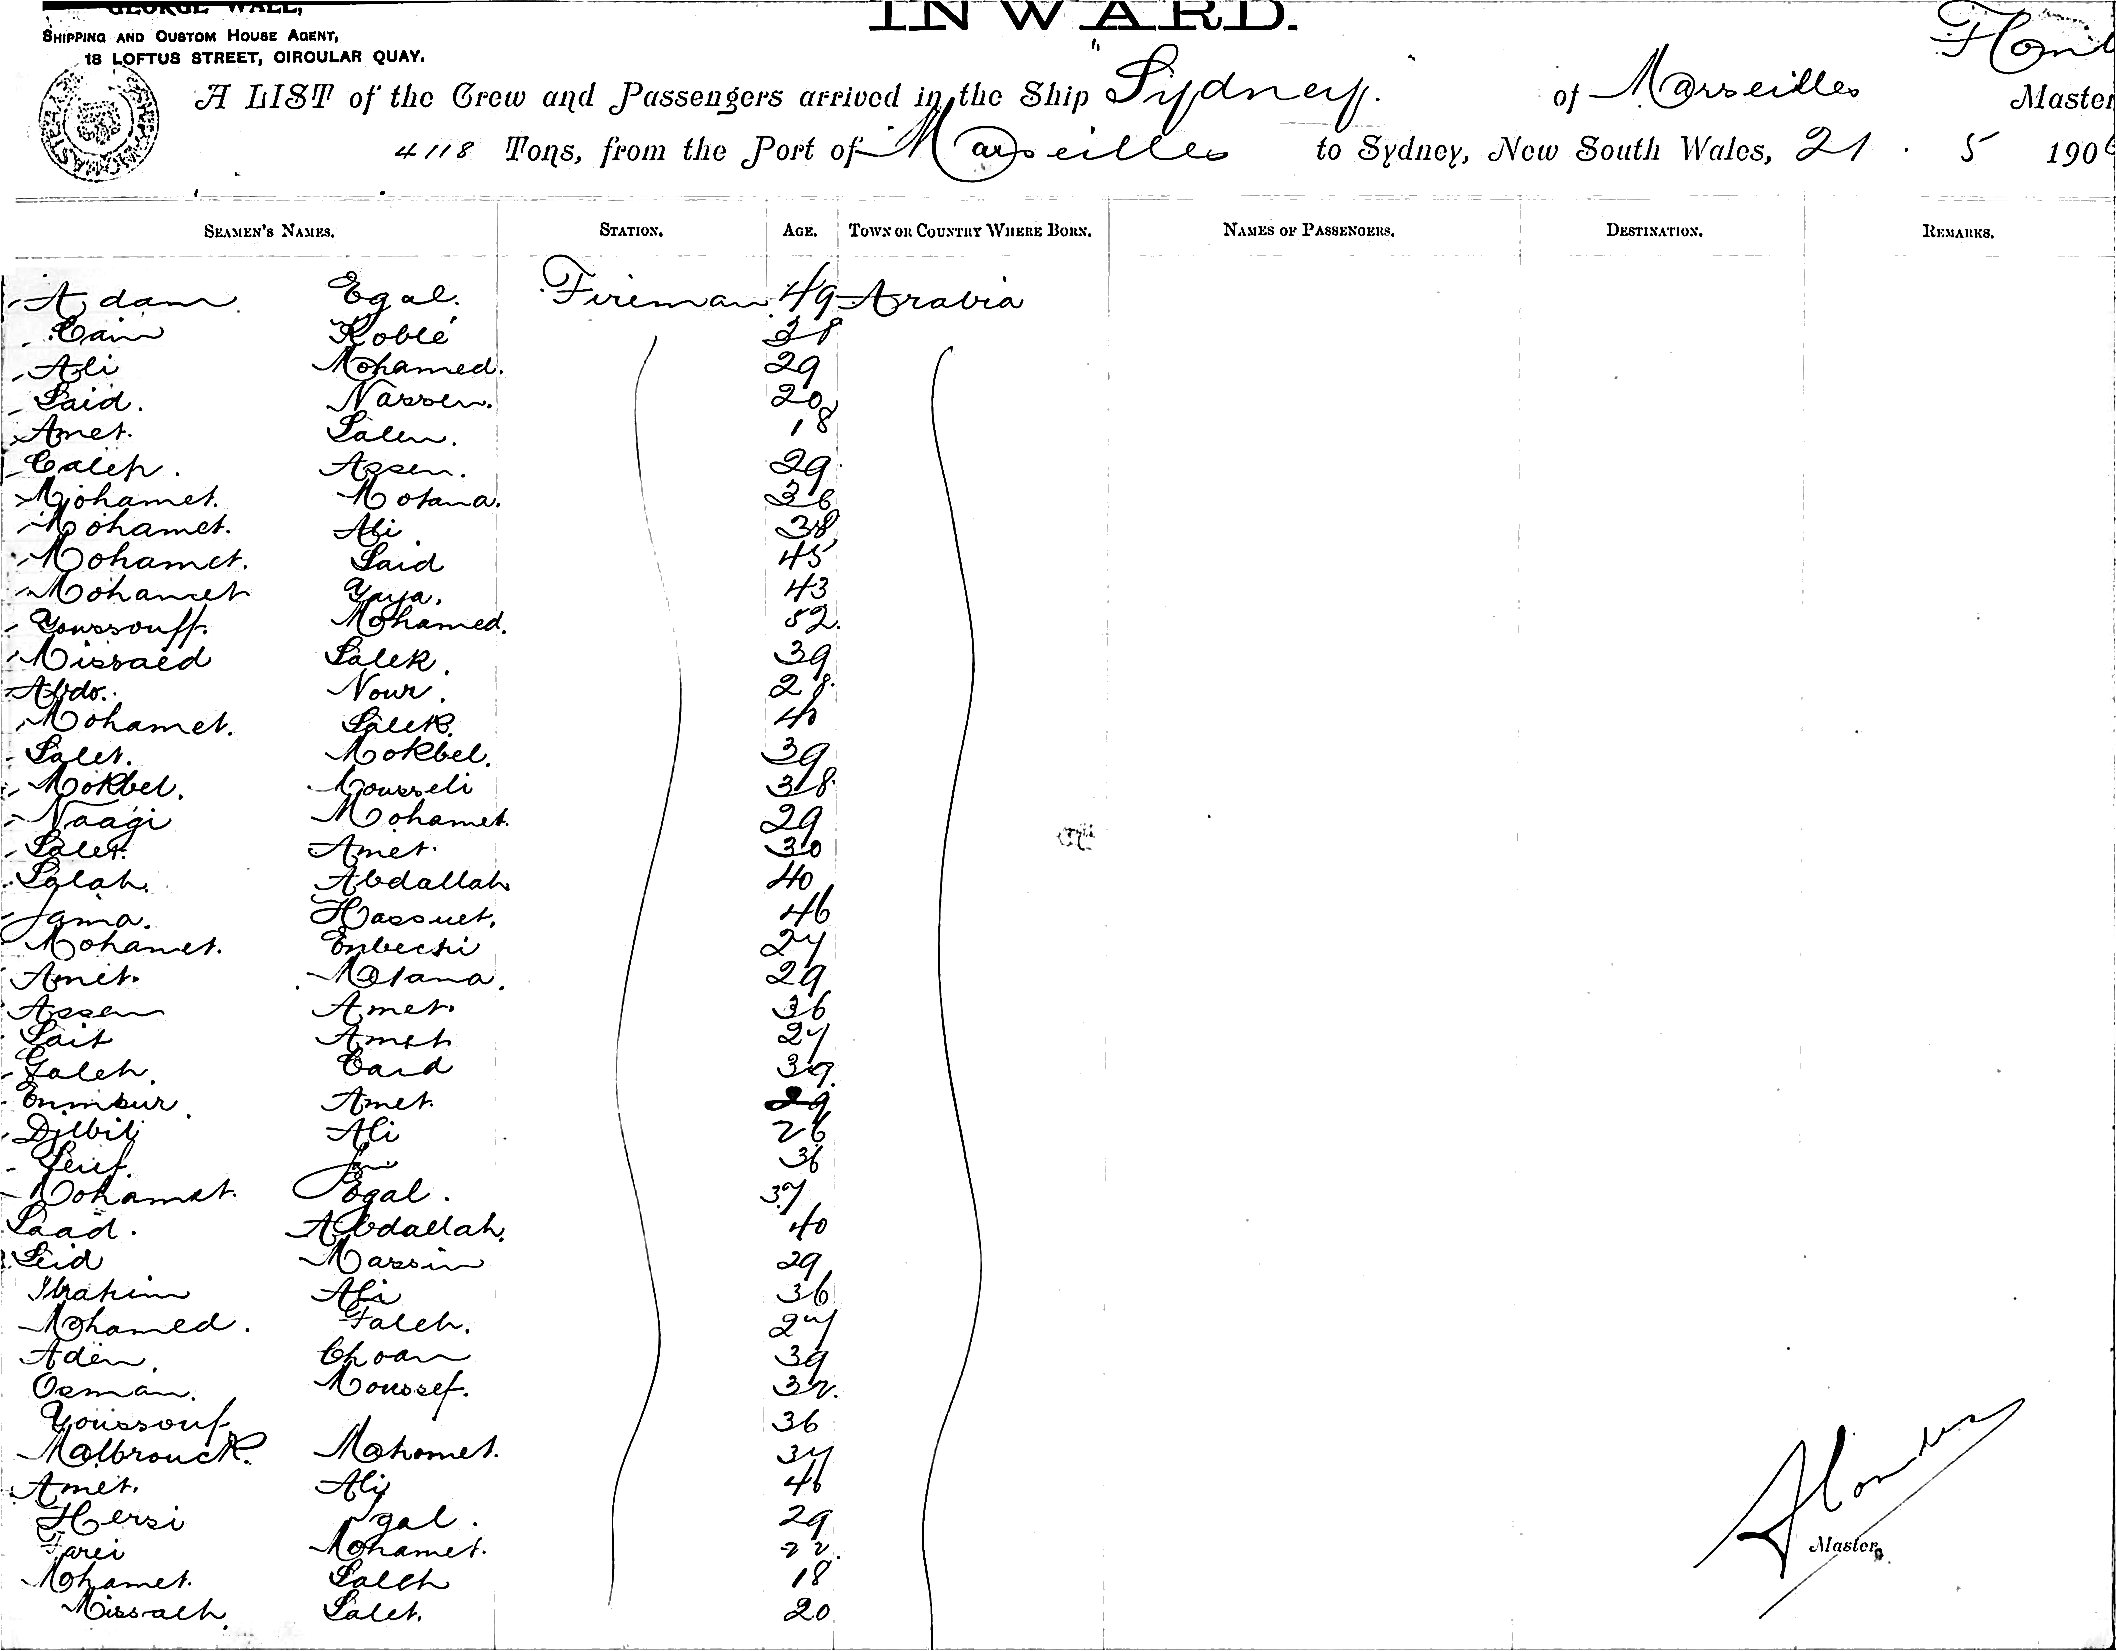 GEORGE WALL,
SHIPPING AND CUSTOM HOUSE AGENT,
18 LOFTUS STREET, CIRCULAR QUAY.
INWARD.
A LIST of the Crew and Passengers arrived in the Ship "Sydney. of Marseilles Master
4118 Tons, from the Port of Marseilles to Sydney, New South Wales, 21. 5 190
SEAMEN'S NAMES. STATION. AGE. TOWN OR COUNTRY WHERE BORN. NAMES OF PASSENGERS. DESTINATION. REMARKS.
Adam Egal. Fireman 49 Arabia
Cain Roblé 38
Ali Mohamed. 29
Said. Nassen. 20
Amet. Salem. 18
Caleh. Assen. 29
Mohamet. Motana. 36
Mohamet. Ali 38
Mohamet. Said 45
Mohamet Yaya. 43
Youssouff. Mohamed. 52.
Missaed Salek. 39
Abdo. Nour. 28.
Mohamet. Salek. 40
Salet. Mokbel. 39
Mokbel. Mousseli 38.
Naagi Mohamet. 29
Salet. Amet. 30
Salah. Abdallah 40
Jama. Hassuet. 46
Mohamet. Enbechi 27
Amet. Motana. 29
Assen Amet. 36
Sait Amet 27
Galeh. Caid 39.
Ennsur. Amet. 29
Djibil Ali 26
36
Mohamet. Egal. 37
Saad. Abdallah. 40
Seid Massin 29
Ibrahim Ali 36
Mohamed. Galeh. 27
Aden. Choan 39
Osman. Moussef. 32.
Youssouf 36
Malbrouck. Mahomet. 37
Amet. Ali 46
Hersi Igal. 29
Farei Mohamet. 22.
Mohamet. Saleh 18
Missaeh. Salet. 20
Master.